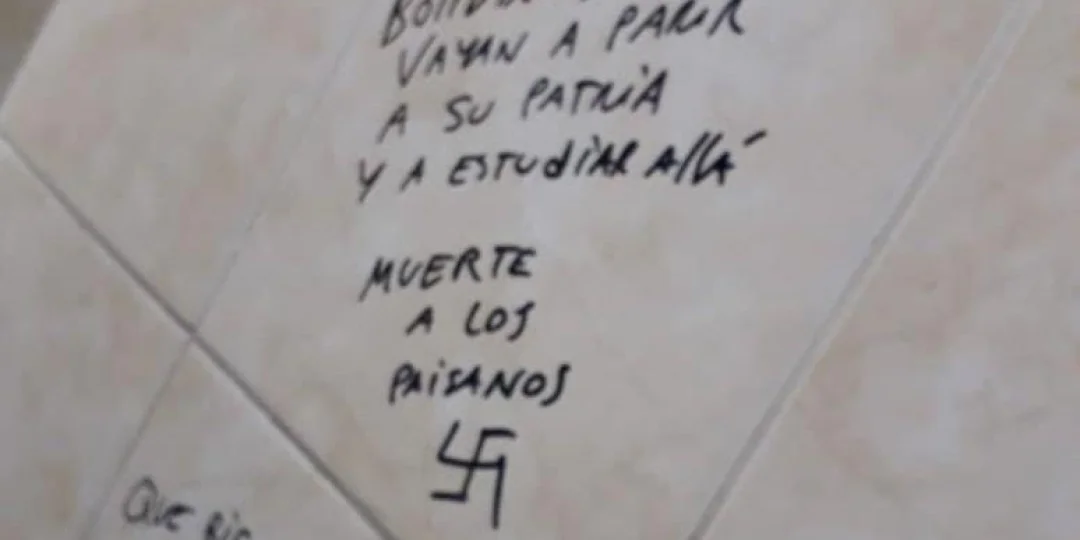 VAYAN A PARIR
A SU PATRIA
Y A ESTUDIAR ALLÁ
MUERTE
A LOS
PAISANOS
QUE